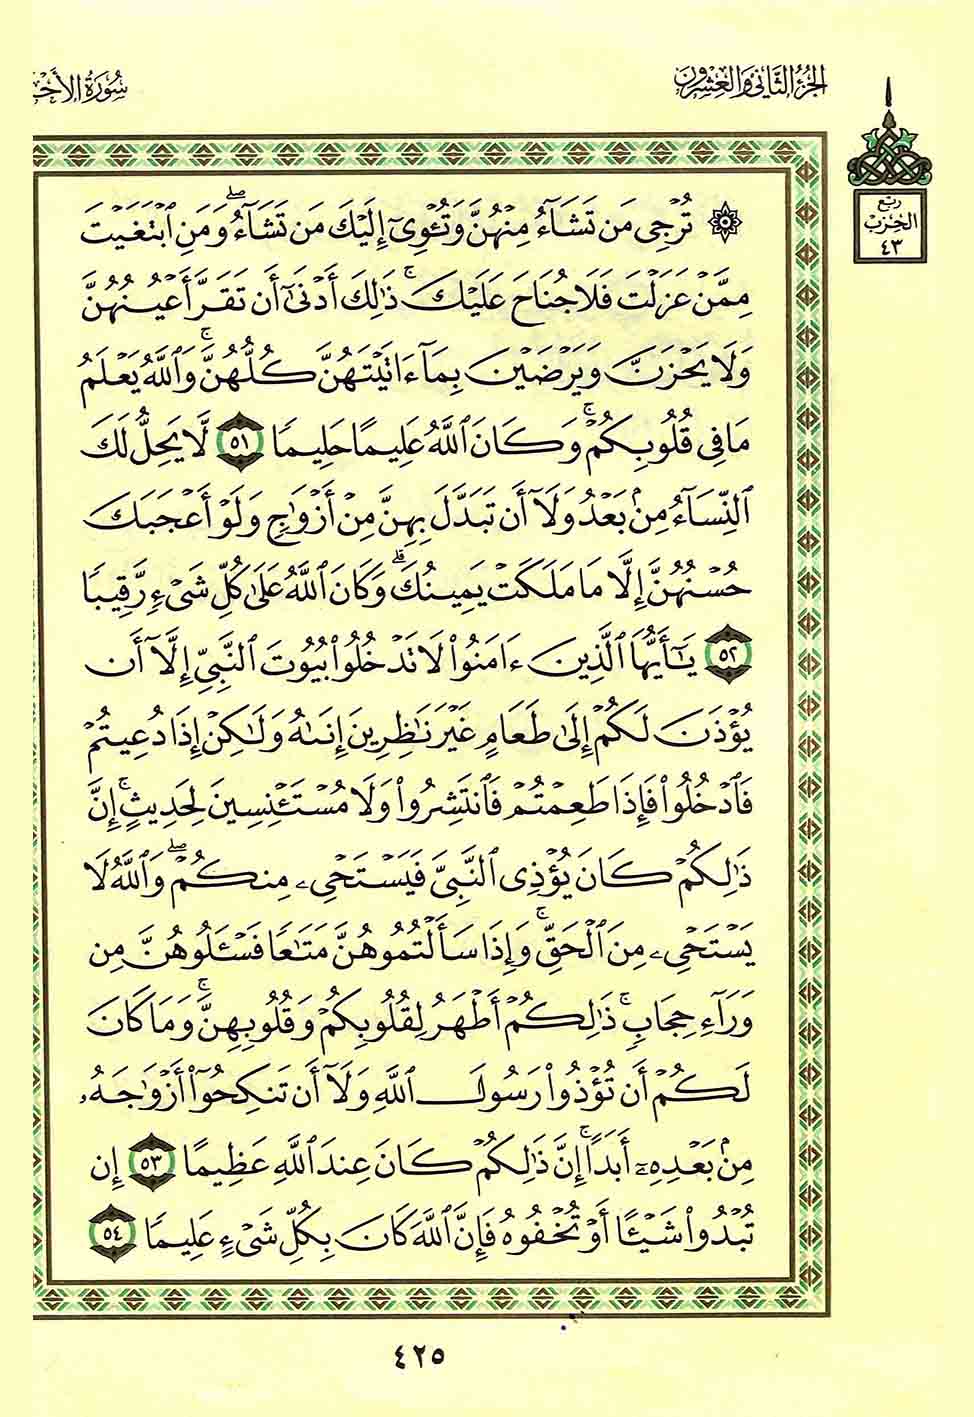 الجزء الثاني والعشرون
سورة الأحـ
ربع
الحزب
٤٣
۞ تُرْجِى مَن تَشَآءُ مِنْهُنَّ وَتُـْٔوِىٓ إِلَيْكَ مَن تَشَآءُ ۖ وَمَنِ ٱبْتَغَيْتَ
مِمَّنْ عَزَلْتَ فَلَا جُنَاحَ عَلَيْكَ ۚ ذَٰلِكَ أَدْنَىٰٓ أَن تَقَرَّ أَعْيُنُهُنَّ
وَلَا يَحْزَنَّ وَيَرْضَيْنَ بِمَآ ءَاتَيْتَهُنَّ كُلُّهُنَّ ۚ وَٱللَّهُ يَعْلَمُ
مَا فِى قُلُوبِكُمْ ۚ وَكَانَ ٱللَّهُ عَلِيمًا حَلِيمًا ٥١ لَّا يَحِلُّ لَكَ
ٱلنِّسَآءُ مِنۢ بَعْدُ وَلَآ أَن تَبَدَّلَ بِهِنَّ مِنْ أَزْوَٰجٍ وَلَوْ أَعْجَبَكَ
حُسْنُهُنَّ إِلَّا مَا مَلَكَتْ يَمِينُكَ ۗ وَكَانَ ٱللَّهُ عَلَىٰ كُلِّ شَىْءٍ رَّقِيبًا
٥٢ يَـٰٓأَيُّهَا ٱلَّذِينَ ءَامَنُوا۟ لَا تَدْخُلُوا۟ بُيُوتَ ٱلنَّبِىِّ إِلَّآ أَن
يُؤْذَنَ لَكُمْ إِلَىٰ طَعَامٍ غَيْرَ نَـٰظِرِينَ إِنَىٰهُ وَلَـٰكِنْ إِذَا دُعِيتُمْ
فَٱدْخُلُوا۟ فَإِذَا طَعِمْتُمْ فَٱنتَشِرُوا۟ وَلَا مُسْتَـْٔنِسِينَ لِحَدِيثٍ ۚ إِنَّ
ذَٰلِكُمْ كَانَ يُؤْذِى ٱلنَّبِىَّ فَيَسْتَحْىِۦ مِنكُمْ ۖ وَٱللَّهُ لَا
يَسْتَحْىِۦ مِنَ ٱلْحَقِّ ۚ وَإِذَا سَأَلْتُمُوهُنَّ مَتَـٰعًا فَسْـَٔلُوهُنَّ مِن
وَرَآءِ حِجَابٍ ۚ ذَٰلِكُمْ أَطْهَرُ لِقُلُوبِكُمْ وَقُلُوبِهِنَّ ۚ وَمَا كَانَ
لَكُمْ أَن تُؤْذُوا۟ رَسُولَ ٱللَّهِ وَلَآ أَن تَنكِحُوٓا۟ أَزْوَٰجَهُۥ
مِنۢ بَعْدِهِۦٓ أَبَدًا ۚ إِنَّ ذَٰلِكُمْ كَانَ عِندَ ٱللَّهِ عَظِيمًا ٥٣ إِن
تُبْدُوا۟ شَيْـًٔا أَوْ تُخْفُوهُ فَإِنَّ ٱللَّهَ كَانَ بِكُلِّ شَىْءٍ عَلِيمًا ٥٤
٤٢٥